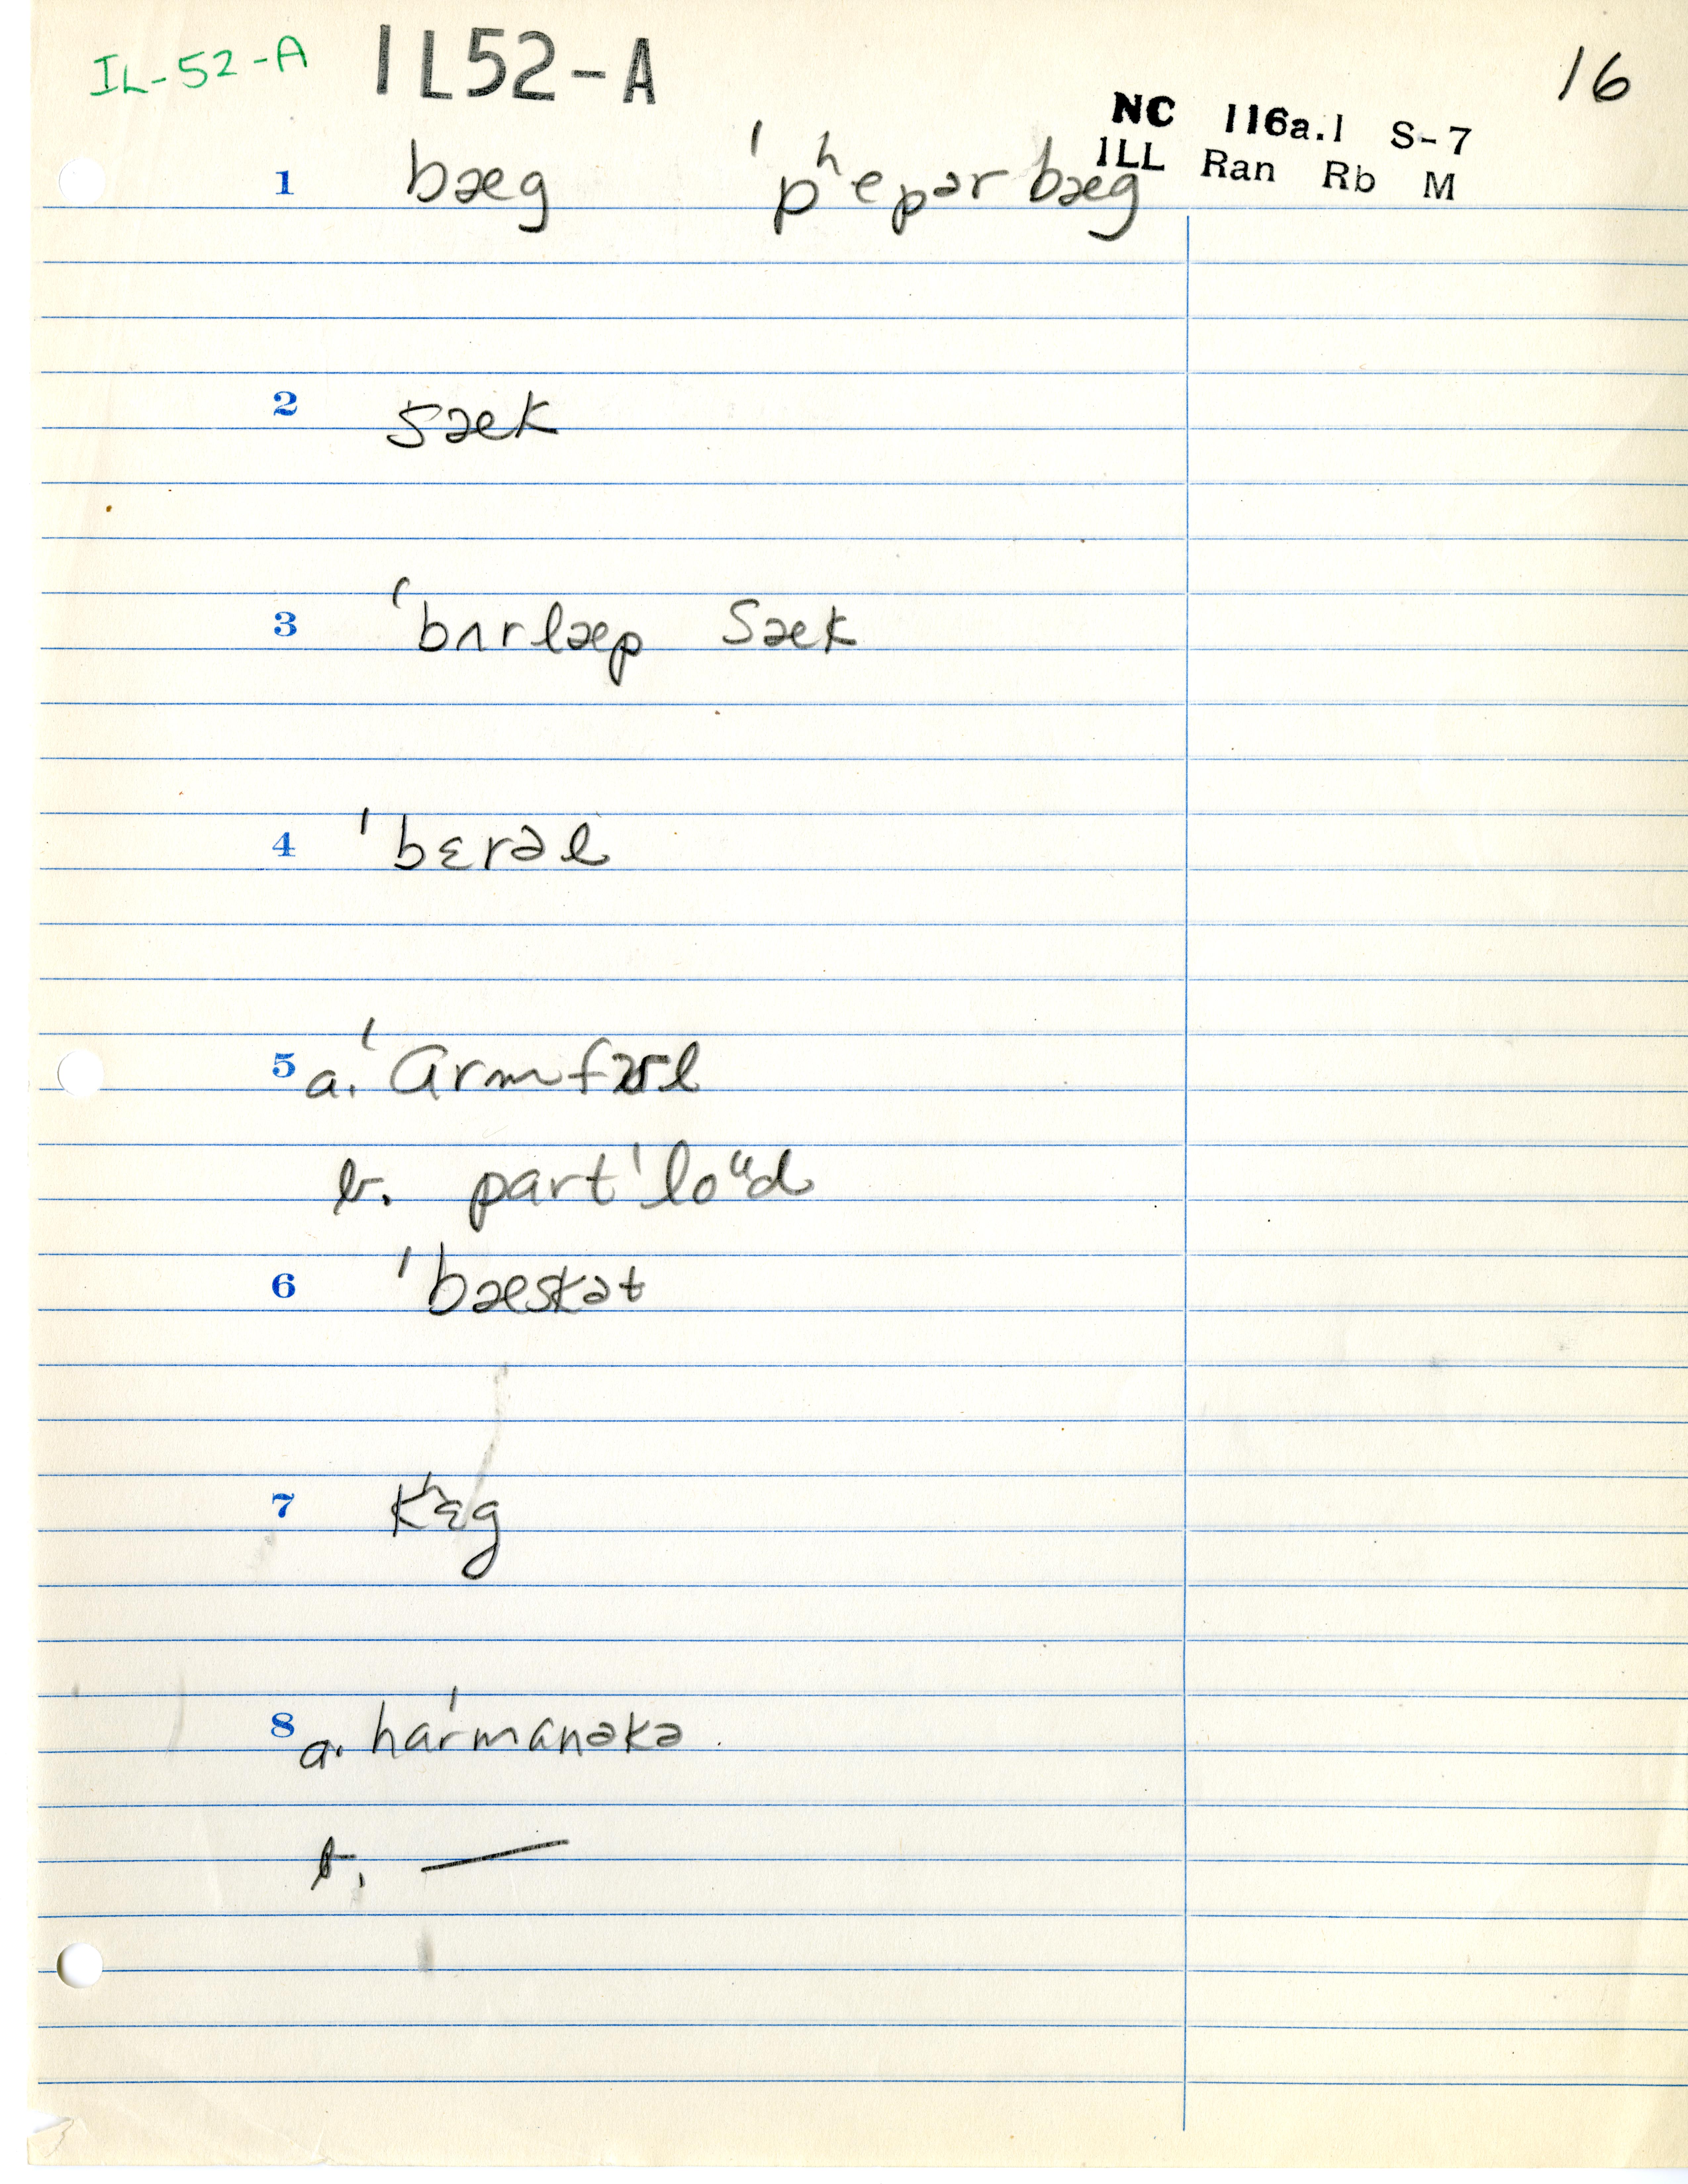 IL-52-A IL52-A 16
NC 116a.1 S-7
ILL Ran Rb M
1 bæg ˈpʰepər bæg
2 sæk
3 ˈbʌrlæp sæk
4 ˈbɛrəl
5 a. ˈɑrmfʊl
b. part ˈloᵘd
6 ˈbæskət
7 kʰɛg
8 a. harˈmanəkə
b. —